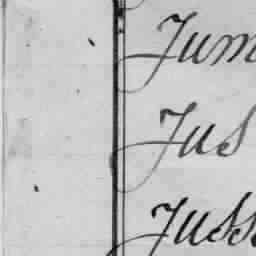 Jum
Jus
Juss